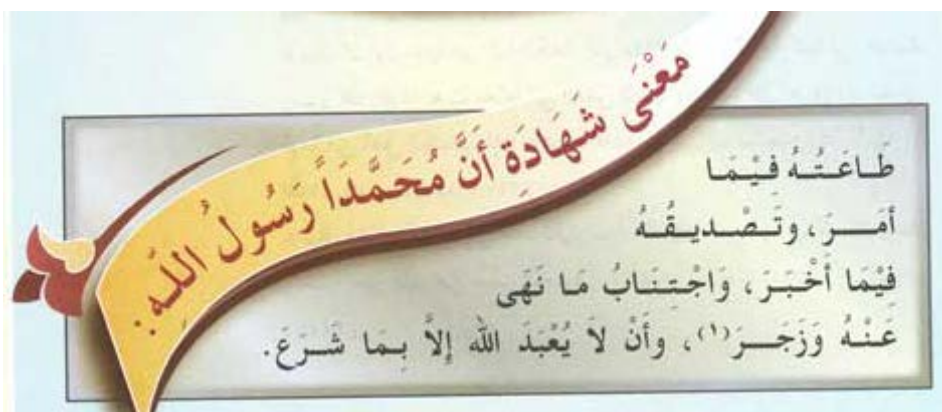 مَعْنَى شَهَادَةِ أَنَّ مُحَمَّدَاً رَسُولُ اللَّهِ:
طَاعَـتُـهُ فِيْـمَـا
أمَــرَ، وتَـصْـديـقُـهُ
فِيْمَا أَخْبَـرَ، وَاجْـتِـنَـابُ مَـا نَهَى
عَـنْـهُ وَزَجَــرَ(١)، وأَنْ لاَ يُعْبَدَ الله إلاَّ بِـمَـا شَــرَعَ.